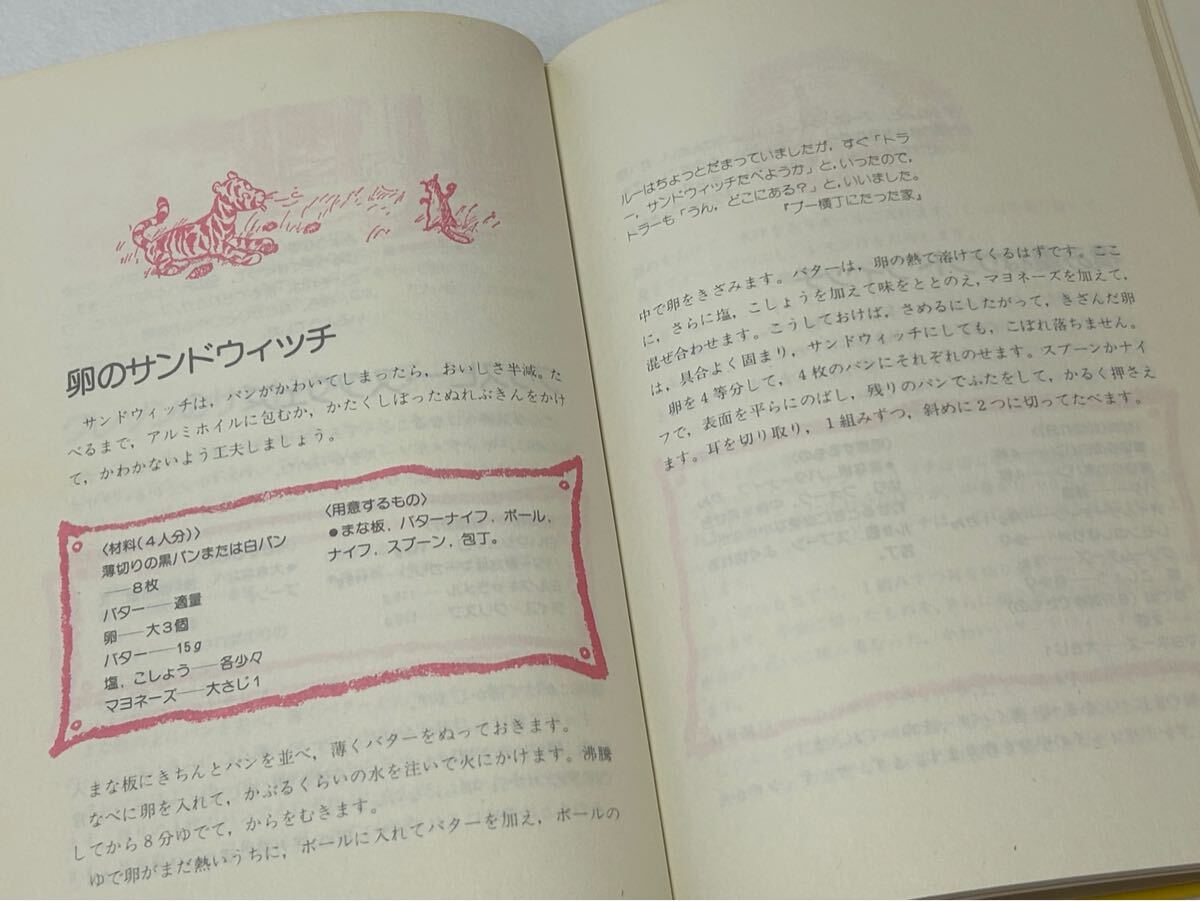 卵のサンドウィッチ
サンドウィッチは，パンがかわいてしまったら，おいしさ半減。た
べるまで，アルミホイルに包むか，かたくしぼったぬれぶきんをかけ
て，かわかないよう工夫しましょう。
〈材料(4人分)〉
薄切りの黒パンまたは白パン
──8枚
バター──適量
卵──大3個
バター──15g
塩，こしょう──各少々
マヨネーズ──大さじ1
〈用意するもの〉
●まな板，バターナイフ，ボール，
ナイフ，スプーン，包丁。
まな板にきちんとパンを並べ，薄くバターをぬっておきます。
なべに卵を入れて，かぶるくらいの水を注いで火にかけます。沸騰
してから8分ゆでて，からをむきます。
ゆで卵がまだ熱いうちに，ボールに入れてバターを加え，ボールの
ルーはちょっとだまっていましたが，すぐ「トラ
ー，サンドウィッチたべようか」と，いったので，
トラーも「うん，どこにある？」と，いいました。
『プー横丁にたった家』
中で卵をきざみます。バターは，卵の熱で溶けてくるはずです。ここ
に，さらに塩，こしょうを加えて味をととのえ，マヨネーズを加えて，
混ぜ合わせます。こうしておけば，さめるにしたがって，きざんだ卵
は，具合よく固まり，サンドウィッチにしても，こぼれ落ちません。
卵を4等分して，4枚のパンにそれぞれのせます。スプーンかナイ
フで，表面を平らにのばし，残りのパンでふたをして，かるく押さえ
ます。耳を切り取り，1組みずつ，斜めに2つに切ってたべます。